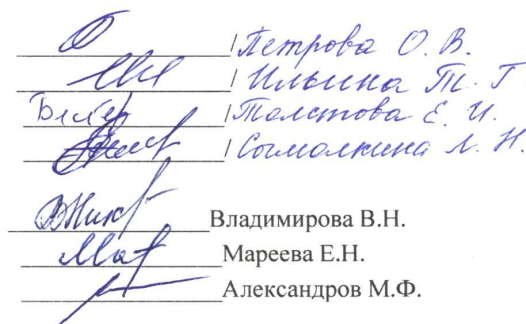 / Петрова О. В.
/ Ильина Т. Г
/ Толстова Е. И.
/ Сымолкина Л. Н.
Владимирова В.Н.
Мареева Е.Н.
Александров М.Ф.